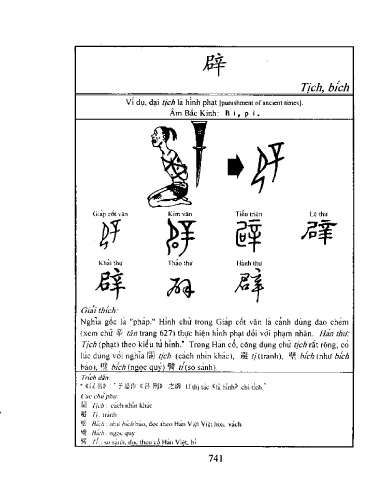 辟
Tịch, bích
Ví dụ, đại tịch là hình phạt [punishment of ancient times].
Âm Bắc Kinh: Bì, pì.
Giáp cốt văn Kim văn Tiểu triện Lệ thư
Khải thư Thảo thư Hành thư
辟
Giải thích:
Nghĩa gốc là "pháp." Hình chữ trong Giáp cốt văn là cảnh dùng dao chém
(xem chữ 辛 tân trang 627) thực hiện hình phạt đối với phạm nhân. Hán thư:
Tịch (phạt) theo kiểu tử hình." Trong Hán cổ, công dụng chữ tịch rất rộng, có
lúc dùng với nghĩa 闢 tịch (cách nhìn khác), 避 tị (tránh), 壁 bích (như bích
báo), 璧 bích (ngọc quý) 譬 tỉ (so sánh).
Trích dẫn:
Các chữ phụ:
闢 Tịch: cách nhìn khác
避 Tị: tránh
壁 Bích: như bích báo, đọc theo Hán Việt Việt hoá, vách
璧 Bích: ngọc quý
譬 Tỉ: so sánh, đọc theo cổ Hán Việt, bì
741